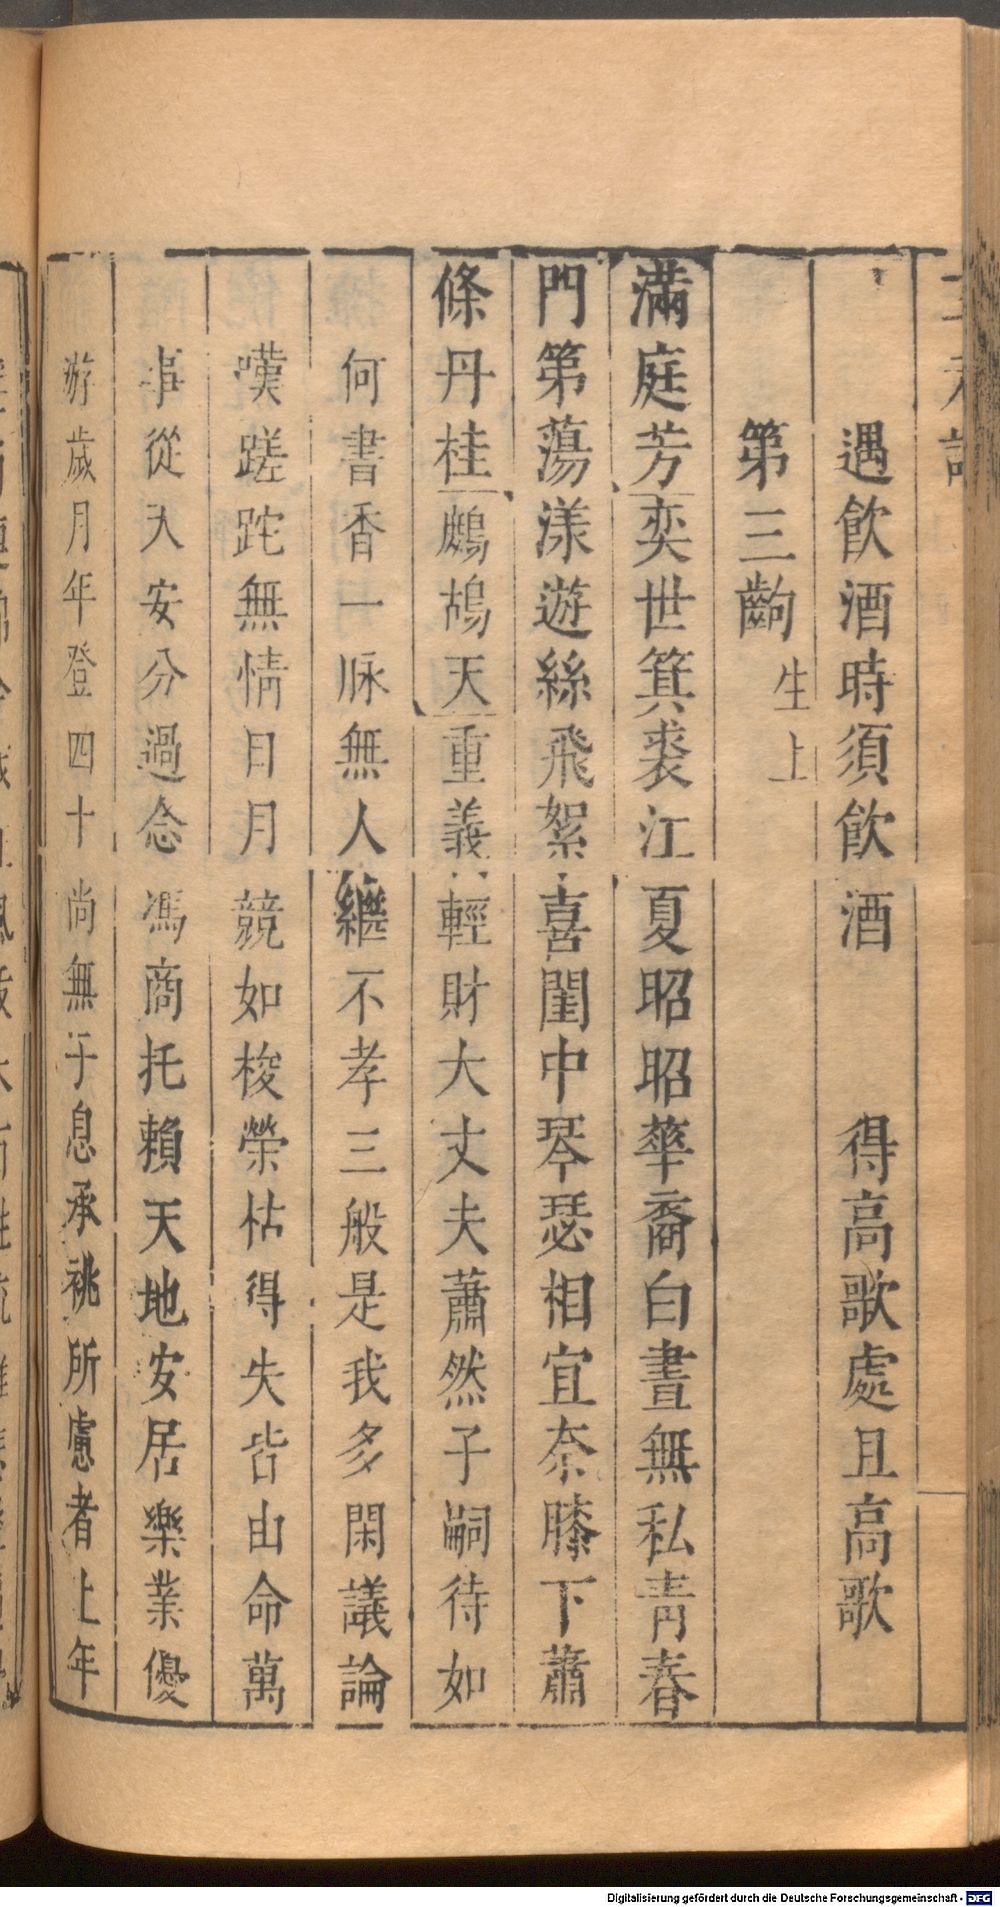 遇飲酒時須飲酒　得高歌處且高歌
第三齣　生上
滿庭芳奕世箕裘江夏昭昭華裔白晝無私靑春
門第蕩漾遊絲飛絮喜閨中琴瑟相宜奈膝下蕭
條丹桂鷓鴣天重義輕財大丈夫蕭然子嗣待如
何書香一脉無人繼不孝三般是我多閑議論
嘆蹉跎無情日月競如梭榮枯得失皆由命萬
事從天安分過念馮商托賴天地安居樂業優
游歲月年登四十尚無子息承祧所慮者上年
Digitalisierung gefördert durch die Deutsche Forschungsgemeinschaft - DFG